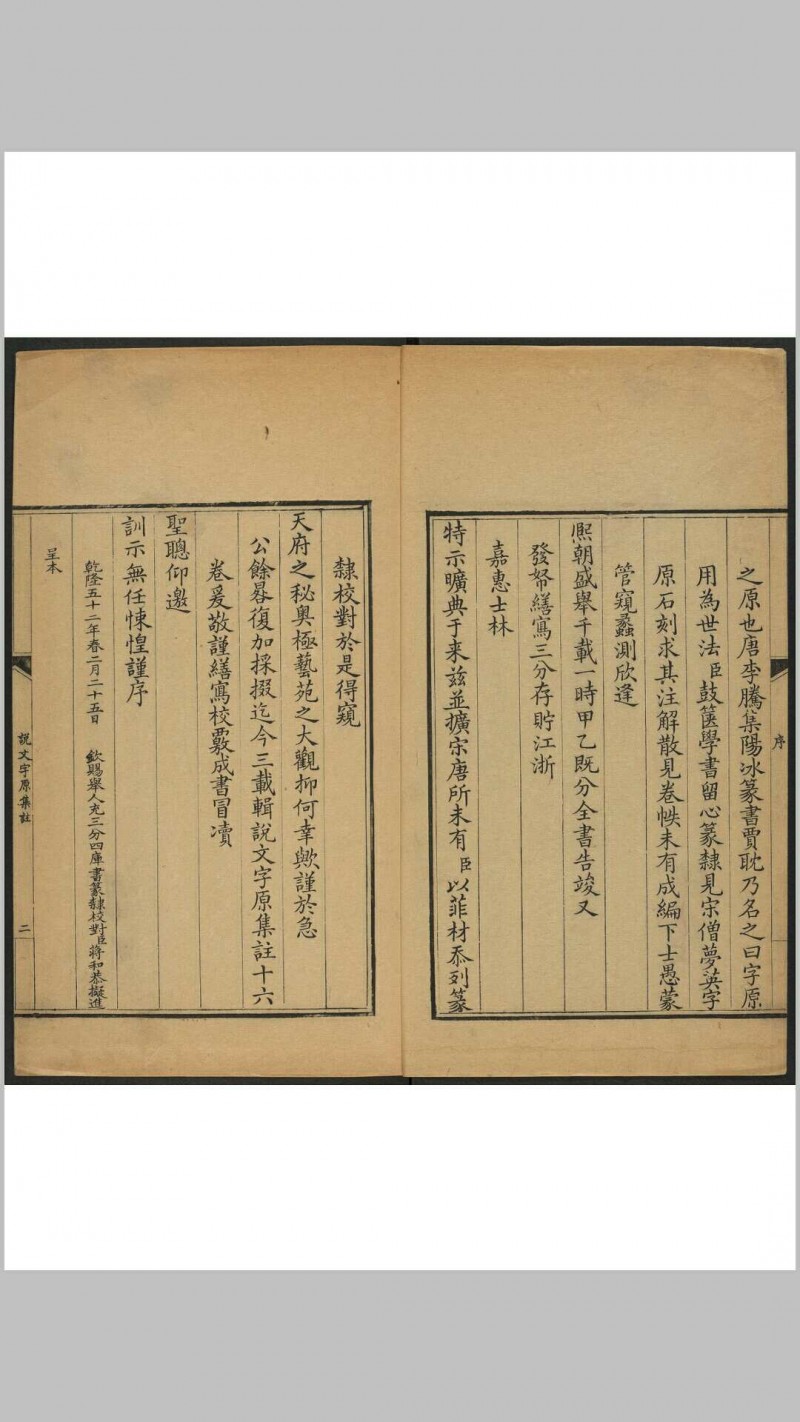 序
之原也唐李騰集陽冰篆書賈耽乃名之曰字原
用為世法臣鼓篋學書留心篆隸見宋僧夢英字
原石刻求其注解散見卷帙未有成編下士愚蒙
管窺蠡測欣逢
熙朝盛舉千載一時甲乙既分全書告竣又
發帑繕寫三分存貯江浙
嘉惠士林
特示曠典于来兹並擴宋唐所未有臣以菲材忝列篆
隸校對於是得窺
天府之秘奥極藝苑之大觀抑何幸歟謹於急
公餘晷復加採掇迄今三載輯說文字原集註十六
卷爰敬謹繕寫校覈成書冒瀆
聖聰仰邀
訓示無任悚惶謹序
乾隆五十二年春二月二十五日 欽賜舉人充三分四庫書篆隸校對臣蔣和恭擬進
呈本
說文字原集註
二